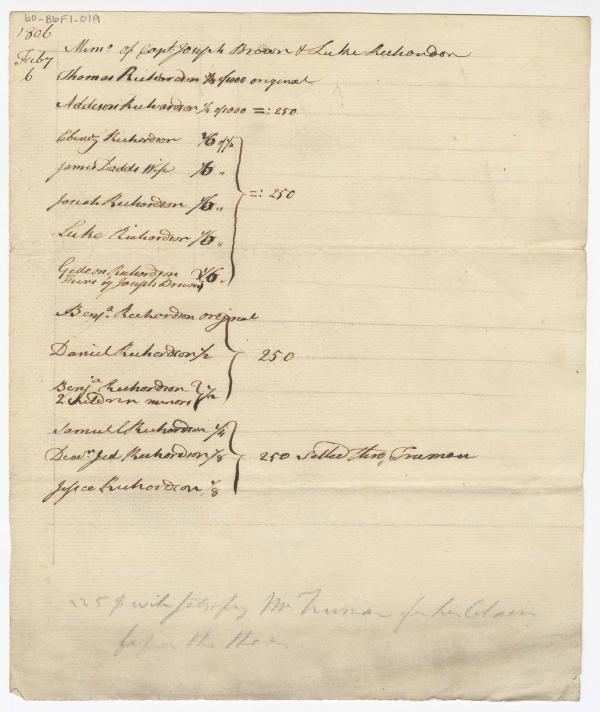 60-B6F1-01A
1806
Feb'y
6
Mem.o of Capt. Joseph Brown & Luke Richardson
Thomas Richardson of 1000 original
Addison Richardson 1/4 of 1000 =: 250
Eben.z Richardson 1/6 of
James Ladds Wife 1/6 "
Josiah Richardson 1/6 "
=: 250
Luke Richardson 1/6 "
Gideon Richardson 1/6 "
Heirs by Joseph Brown
Benj.a Richardson original
Daniel Richardson 1/2
250
Benj.a Richardson 1/2
2 Children minors
Samuel Richardson 1/4
Deac.n Jed Richardson 1/8
250 Settled thro Truman
Richardson 1/8
25 $ will satisfy Mr Truman for his Claim
for the